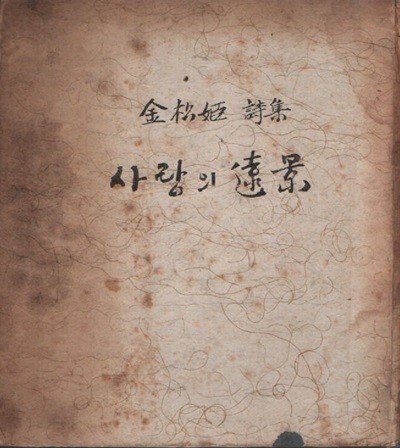 金松姬 詩集
사랑의 遠景